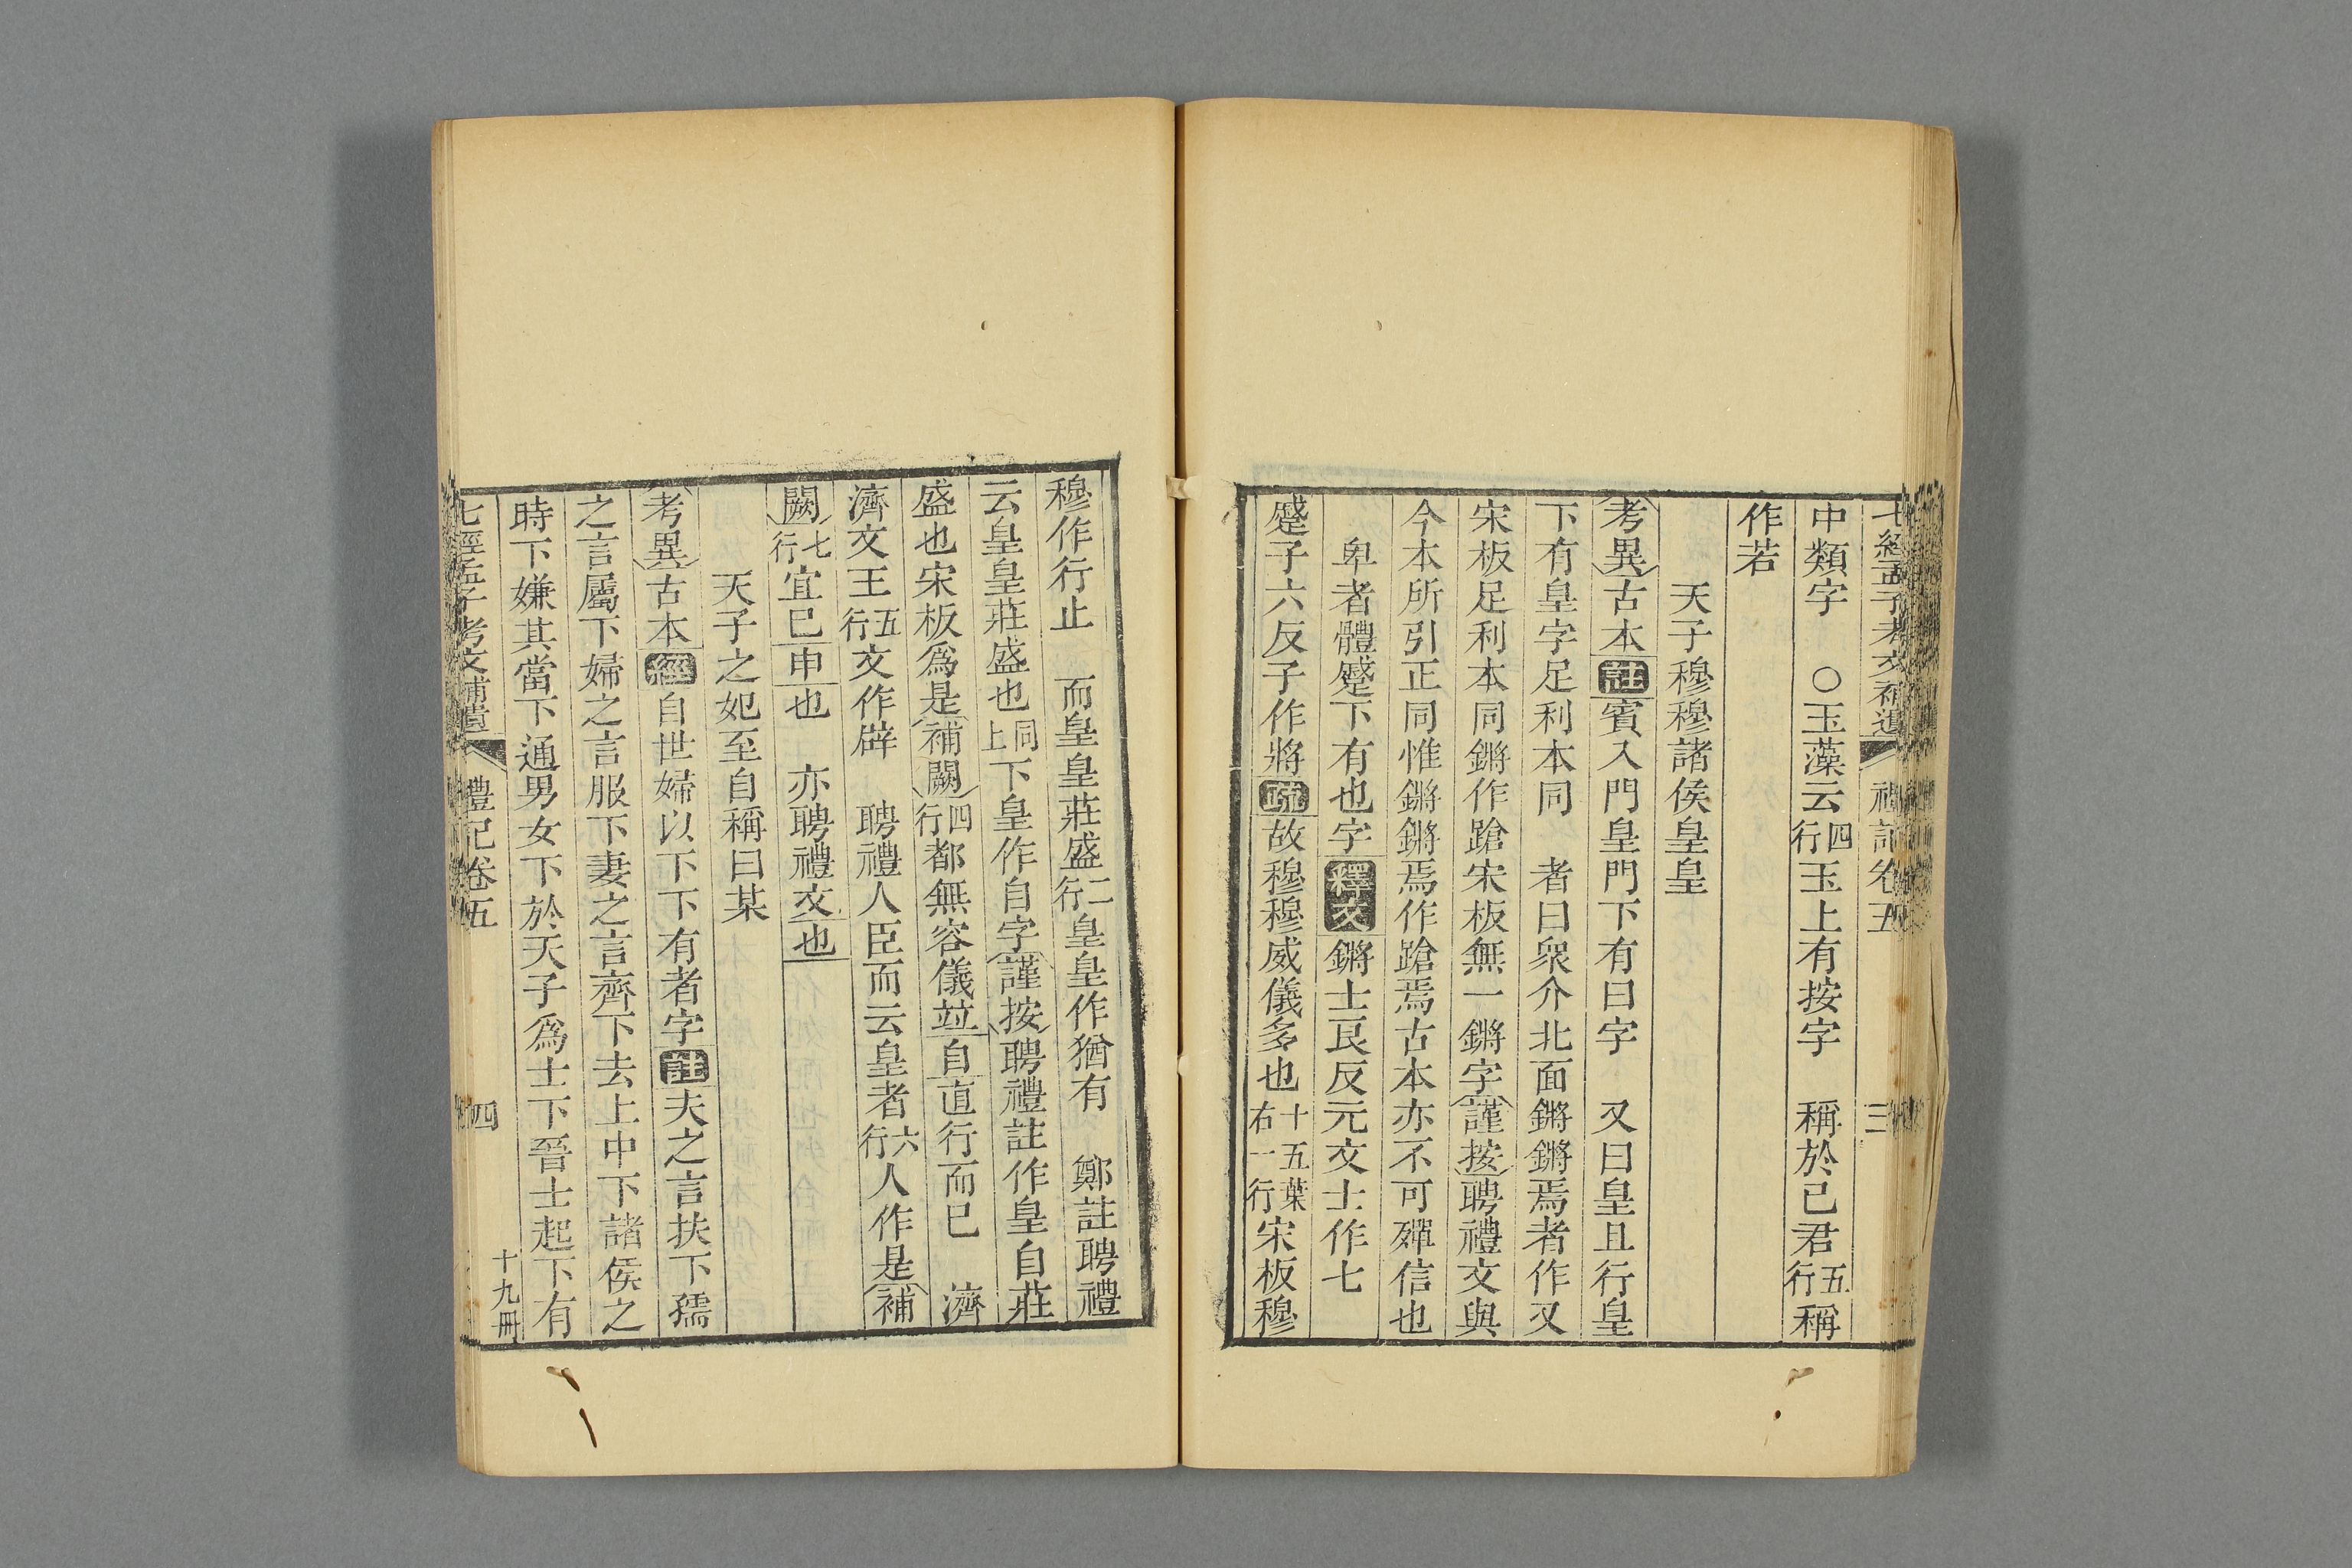 七經孟子考文補遺 禮記卷五 三
中類字 ○玉藻云四行玉上有按字 稱於已君五行稱
作若
天子穆穆諸侯皇皇
考異古本註賓入門皇門下有曰字 又曰皇且行皇
下有皇字足利本同 者曰衆介北面鏘鏘焉者作又
宋板足利本同鏘作蹌宋板無一鏘字謹按聘禮文與
今本所引正同惟鏘鏘焉作蹌焉古本亦不可殫信也
卑者體蹙下有也字釋文鏘士良反元文士作七
蹙子六反子作將疏故穆穆威儀多也十五葉右一行宋板穆
穆作行止 而皇皇莊盛二行皇皇作猶有 鄭註聘禮
云皇皇莊盛也同上下皇作自字謹按聘禮註作皇自莊
盛也宋板爲是補闕四行都無容儀竝自直行而已 濟
濟文王五行文作辟 聘禮人臣而云皇者六行人作是補
闕七行宜巳申也 亦聘禮文也
天子之妃至自稱曰某
考異古本經自世婦以下下有者字註夫之言扶下孺
之言屬下婦之言服下妻之言齊下去上中下諸侯之
時下嫌其當下通男女下於天子爲士下晉士起下有
七經孟子考文補遺 禮記卷五 四 十九冊